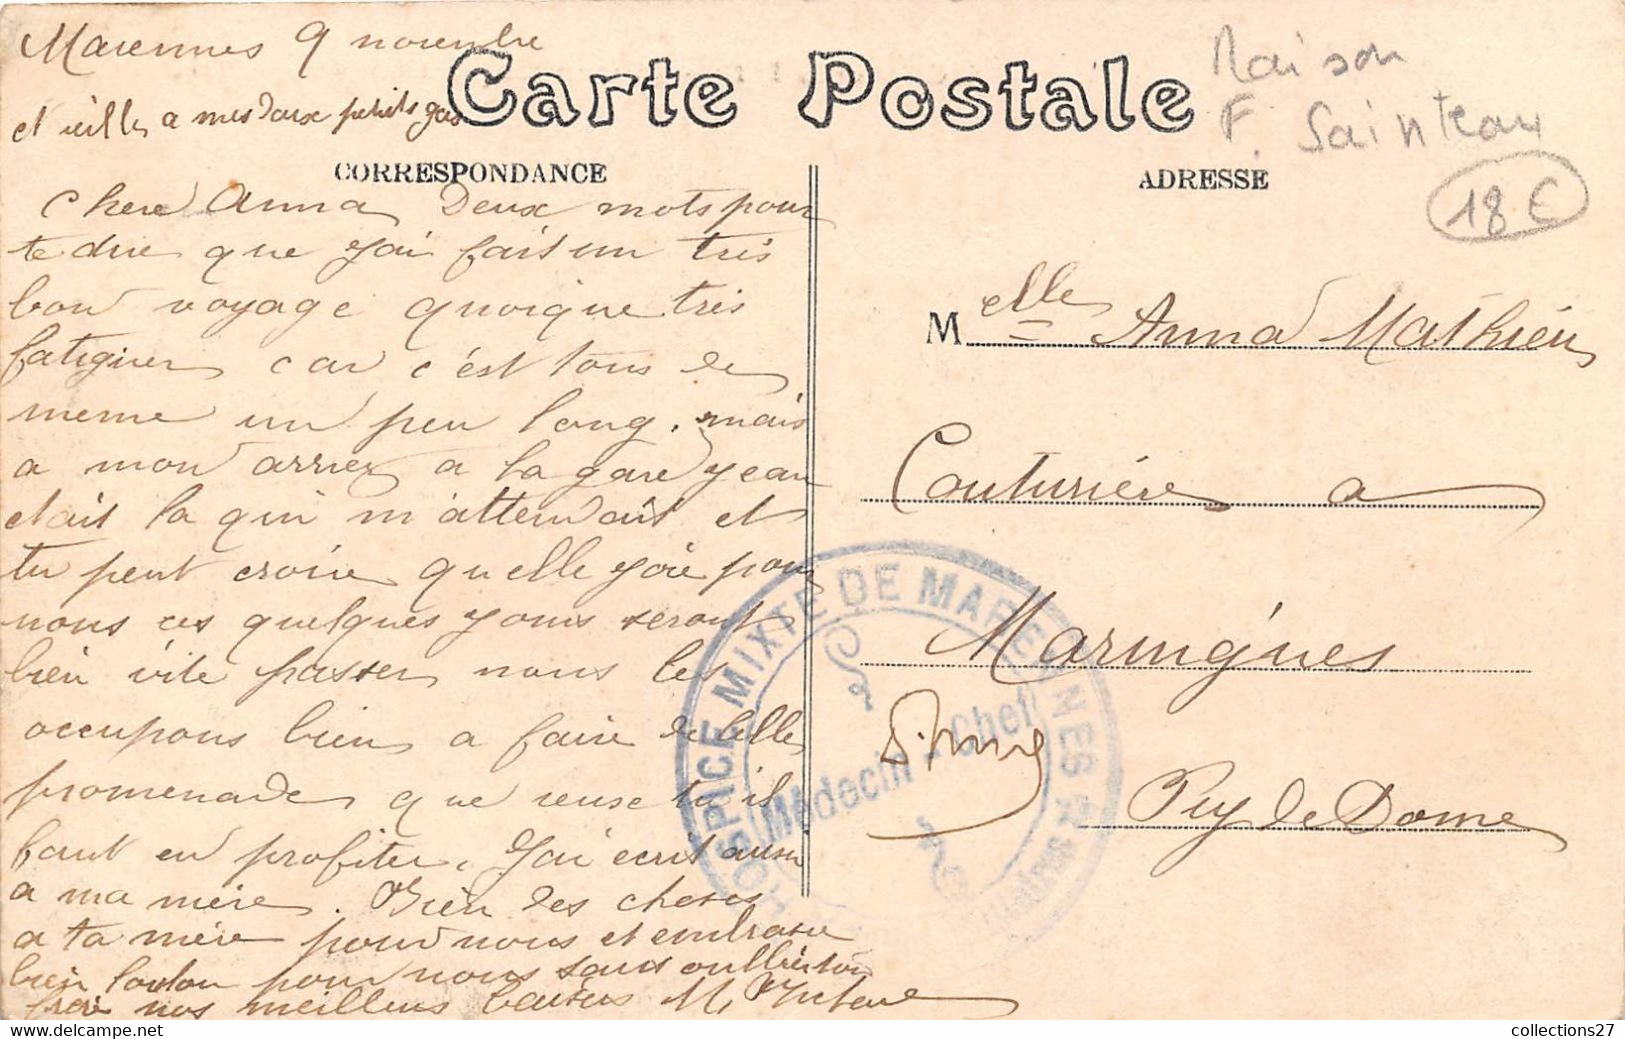 Marennes 9 novembre
et veille a mes deux petits gas
Carte Postale
Maison
F. Sainteau
18 €
CORRESPONDANCE
ADRESSE
Chere Anna Deux mots pour
te dire que j'ai fait un très
bon voyage quoique très
fatiguer car c'est tous de
meme un peu long. mais
a mon arrier a la gare jean
etait la qui m'attendait et
tu peut croire quelle joie pour
nous ces quelques jours seront
bien vite passer nous les
occupons bien a faire de belles
promenades que veuse tu il
faut en profiter. J'ai ecrit aussi
a ma mère. Bien des choses
a ta mère pour nous et embrasse
bien pour nous sans oublier ton
frère nos meilleurs baisers M.
M elle Anna Mathieu
Couturière a
Maringues
Puy de Dome
HOSPICE MIXTE DE MARENNES
Médecin-Chef
collections27